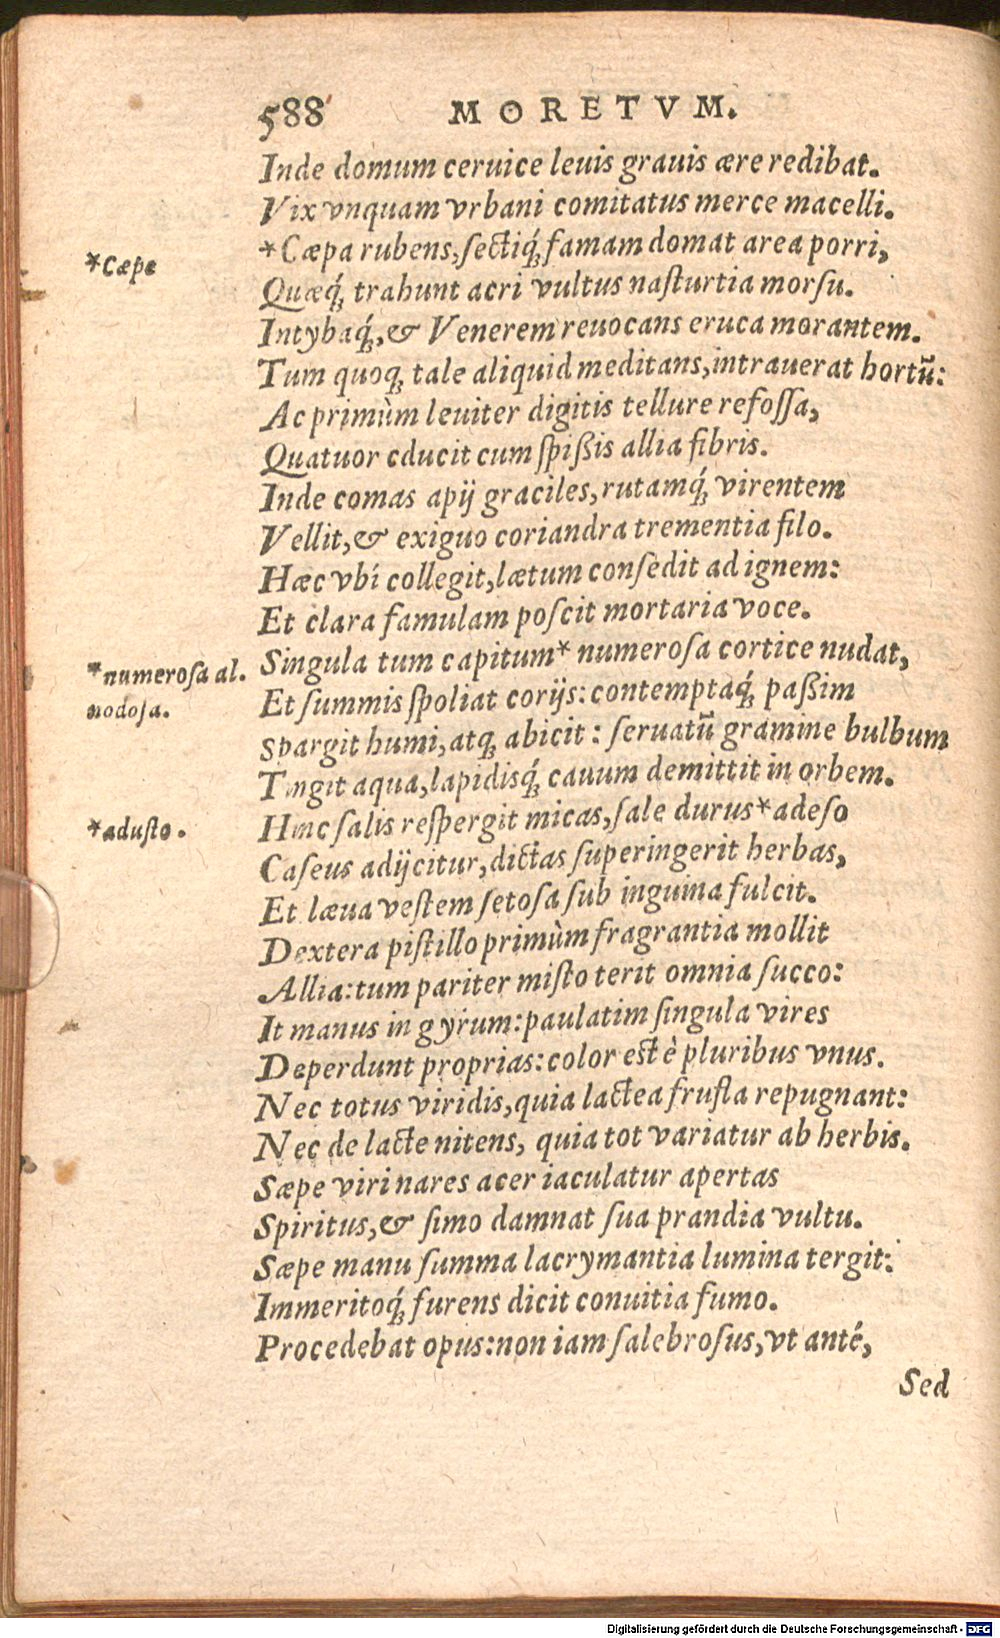 588 MORETVM.
Inde domum ceruice leuis grauis ære redibat.
Vix vnquam vrbani comitatus merce macelli.
*Cæpe
*Cæpa rubens, sectiq́; famam domat area porri,
Quæq́; trahunt acri vultus nasturtia morsu.
Intybaq́;, & Venerem reuocans eruca morantem.
Tum quoq; tale aliquid meditans, intrauerat hortũ:
Ac primùm leuiter digitis tellure refossa,
Quatuor educit cum spißis allia fibris.
Inde comas apij graciles, rutamq́; virentem
Vellit, & exiguo coriandra trementia filo.
Hæc vbi collegit, lætum consedit ad ignem:
Et clara famulam poscit mortaria voce.
*numerosa al.
nodosa.
Singula tum capitum* numerosa cortice nudat,
Et summis spoliat corijs: contemptaq́; paßim
Spargit humi, atq; abicit: seruatũ gramine bulbum
Tingit aqua, lapidisq́; cauum demittit in orbem.
*adusto.
Hinc salis respergit micas, sale durus* adeso
Caseus adijcitur, dictas superingerit herbas,
Et læua vestem setosa sub inguina fulcit.
Dextera pistillo primùm fragrantia mollit
Allia: tum pariter misto terit omnia succo:
It manus in gyrum: paulatim singula vires
Deperdunt proprias: color est è pluribus vnus.
Nec totus viridis, quia lactea frusta repugnant:
Nec de lacte nitens, quia tot variatur ab herbis.
Sæpe viri nares acer iaculatur apertas
Spiritus, & simo damnat sua prandia vultu.
Sæpe manu summa lacrymantia lumina tergit:
Immeritoq́; furens dicit conuitia fumo.
Procedebat opus: non iam salebrosus, vt anté,
Sed
Digitalisierung gefördert durch die Deutsche Forschungsgemeinschaft - DFG